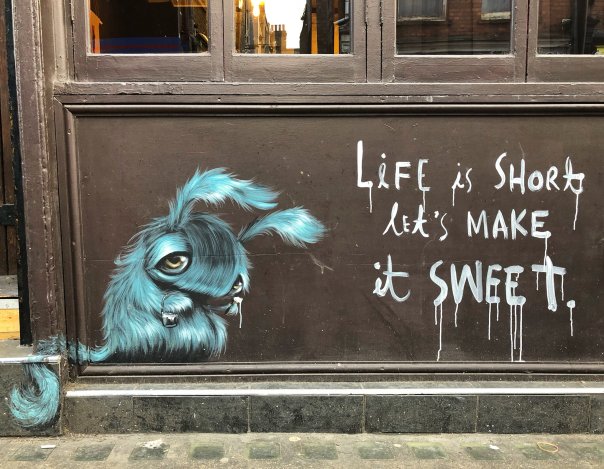 LiFE is SHORt
LEt's MAKE
it SWEEt.